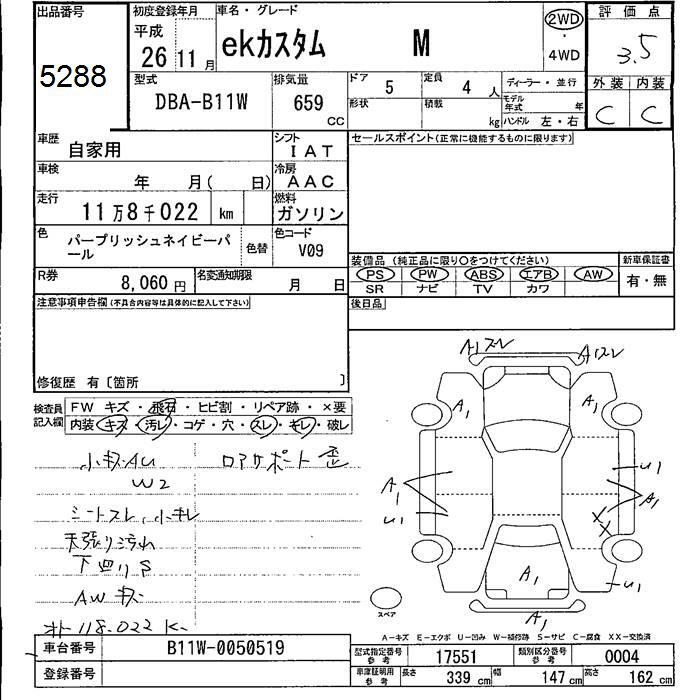 出品番号 5288
初度登録年月 平成 26年 11月
車名・グレード ekカスタム M
2WD ・ 4WD
評価点 3.5
型式 DBA-B11W
排気量 659 CC
ドア 5
定員 4 人
形状
積載 kg
ディーラー・並行
モデル年式 年
ハンドル 左・右
外装 内装
C C
車歴 自家用
シフト IAT
セールスポイント(正常に機能するものに限ります)
車検 年 月( 日)
冷房 AAC
走行 11万8千022 km
燃料 ガソリン
色 パープリッシュネイビーパール
色替
色コード V09
装備品 (純正品に限り○をつけてください)
新車保証書
PS PW ABS エアB AW
SR ナビ TV カワ
有・無
R券 8,060 円
名変通知期限 月 日
後日品
注意事項申告欄(不具合内容等は具体的に記入して下さい)
修復歴 有〔箇所 〕
検査員記入欄
FW キズ・飛石・ヒビ割・リペア跡・×要
内装 キズ・汚レ・コゲ・穴・スレ・キレ・破レ
小キズAU
W2
ロアサポート 歪
シートスレ、小キレ
天張り汚れ
下回りS
AWキズ
118.022 K
A1スレ A1スレ
A1 A1
A1 U1
U1 A1
XX
U1
A1
A1
スペア
A-キズ E-エクボ U-凹み W-補修跡 S-サビ C-腐食 XX-交換済
車台番号 B11W-0050519
登録番号
型式指定番号 参考 17551
類別区分番号 参考 0004
車庫証明用 参考 長さ 339 cm 幅 147 cm 高さ 162 cm